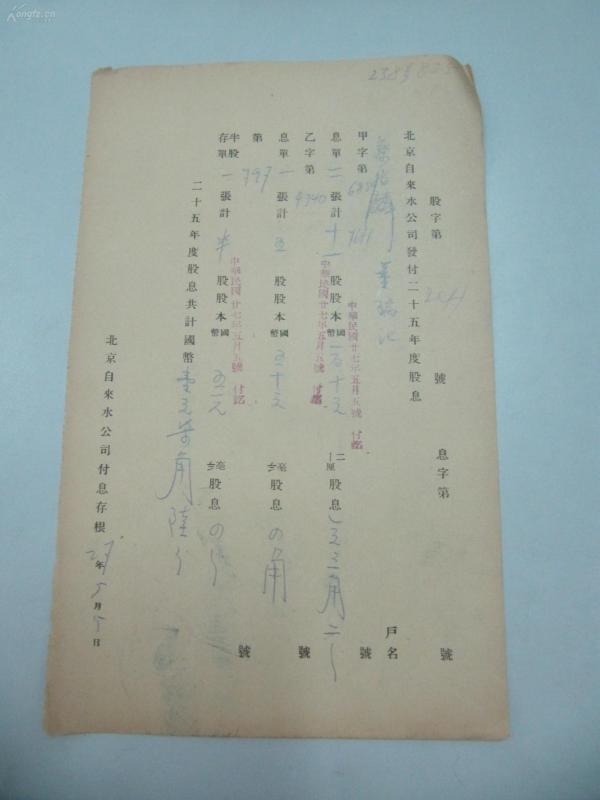 kongfz.cn
股字第 號 息字第 號
北京自來水公司發付二十五年度股息 戶名
董瑞記
甲字第 號
息單二張計十一股股本國幣一百十元 二厘一 股息一元三角二分
中華民國廿七年五月五號付訖
乙字第 4740 號
息單一張計五股股本國幣五十元 毫 股息〇四角
中華民國廿七年五月五號付訖
半股第 797 號
存單一張計半股股本國幣五元 毫 股息〇四分
中華民國廿七年五月五號付訖
二十五年度股息共計國幣壹元柒角陸分
北京自來水公司付息存根 27年5月5日